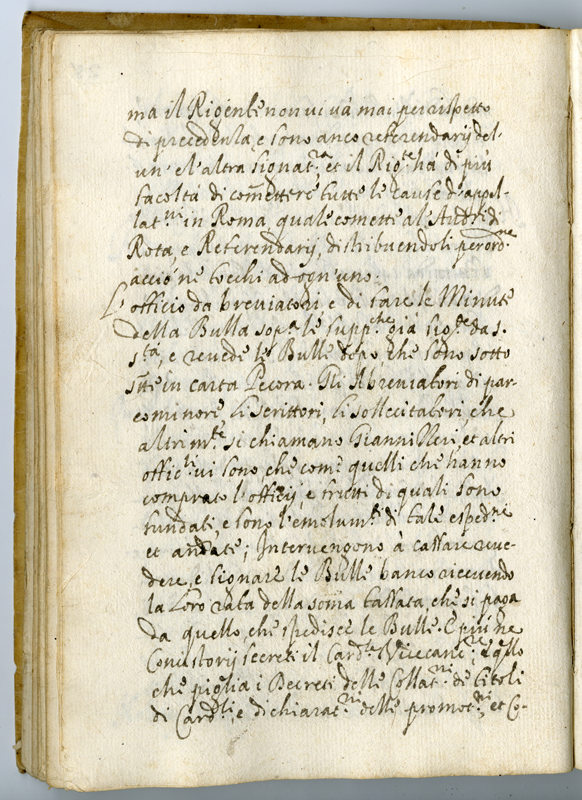 ma il Rigente non vi và mai per rispetto
di precedenza, e sono anco referendarij del-
un' e l'altra signat.ra, et il Rig.te há di più
facoltá di com̃ettere tutte le cause d'appel-
lat.ni in Roma, quale comette al' Audri di
Rota, e Referendarij, distribuendoli per ord.ne
acciò ne tocchi ad ogn'uno.
L'officio da breviatori e di fare le Minute
della Bulla sop.a le supp.che giá sig.te da S.
S.tá, e revede le Bulle dopo, che sono sotto
in carta Pecora. Gli Abreviatori di par-
co minore, li scrittori, li sollecitatori, che
altrim.te si chiamano Gianniẓẓeri, et altri
offic.li vi sono, che com.e quelli che hanno
comprato l'officij, e frutti di quali sono
fundati, e sono l'emolum.ti di tale esped.ne
et annate; Intervengono à tassare reve-
dere, e signare le Bulle hanno ricevendo
la Loro rata della som̃a tassata, che si paga
da quello, che spedisce le Bulle. E più ne
Concistorij secreti il Card.le Vicecanc.re, è q̃llo
che piglia i Decreti delle Collat.ni de titoli
di Card.li, e dichiarat.ni delle promot.ni, et Co-